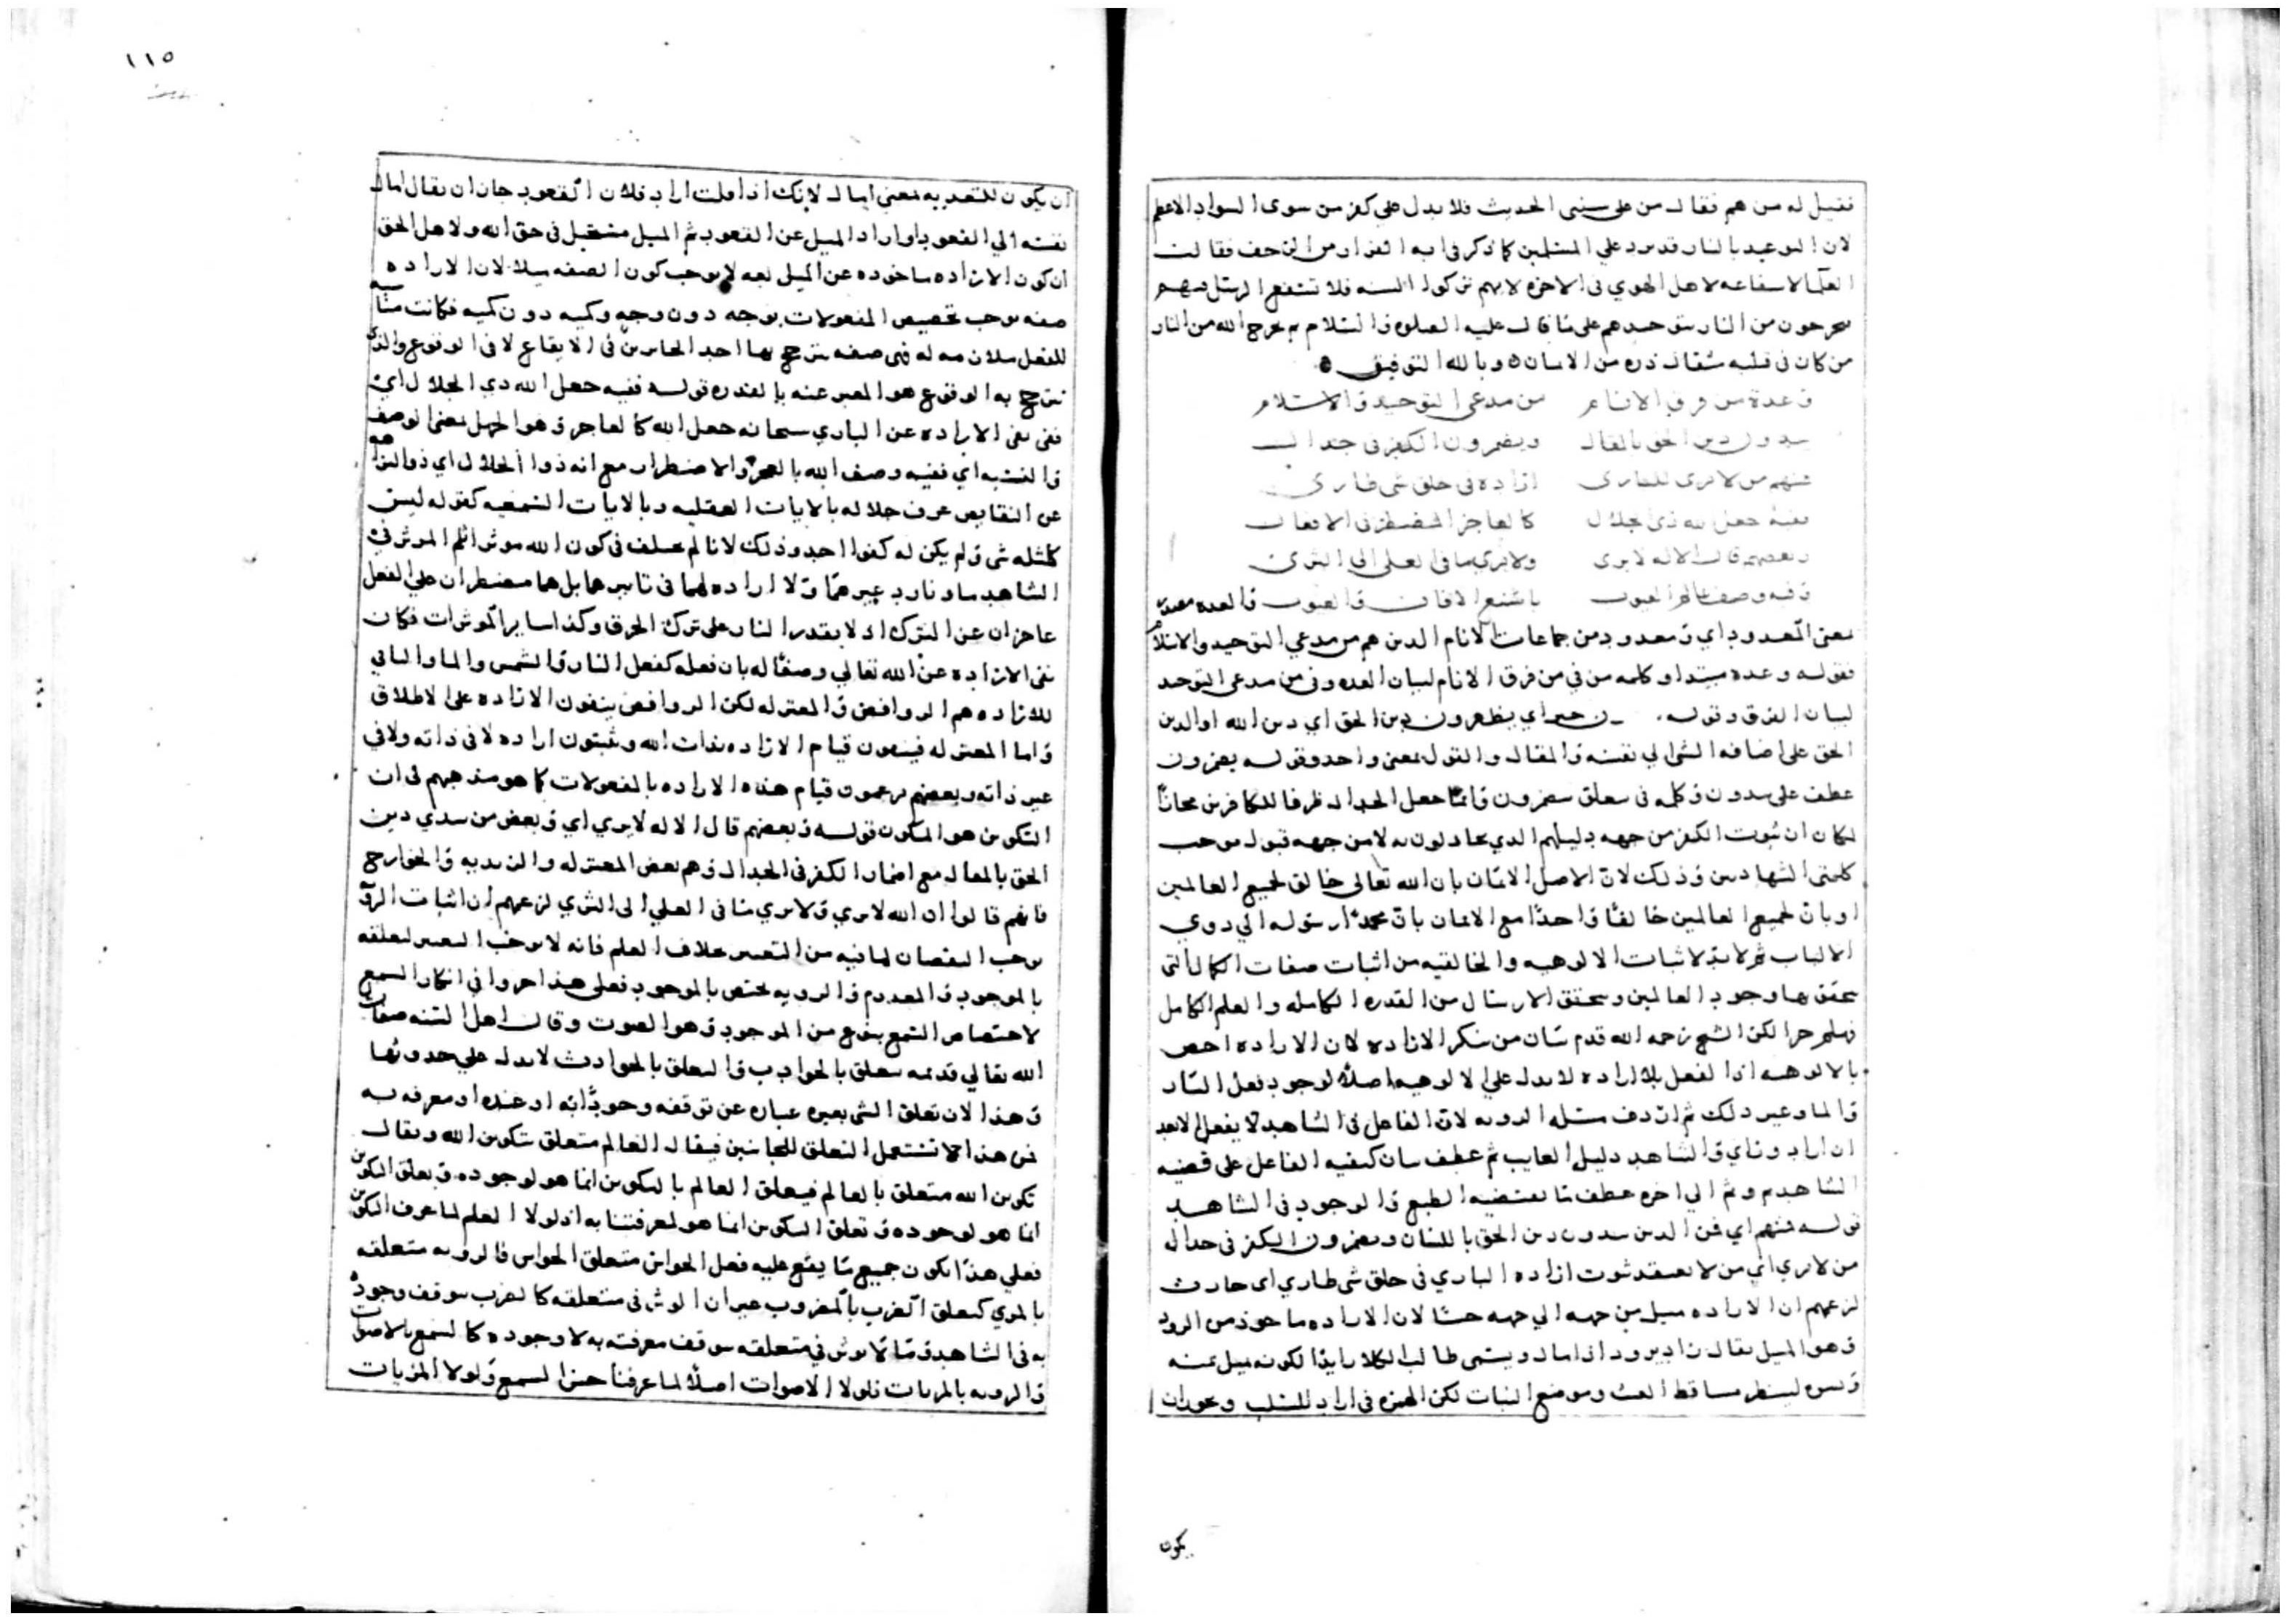 فقيل له من هم فقال من على سنتي الحديث فلا يدل على كفر من سوى السواد الاعظم
لان الوعيد بالنار قد يرد على المسلمين كما ذكر في اية الفرار من الزحف فقالت
العلما لا شفاعة لاهل الهوي في الاخرة لانهم تركوا السنه فلا تشفع الرسل فيهم
يخرجون من النار بتوحيدهم على ما قال عليه الصلوة والسلام يخرج الله من النار
من كان في قلبه مثقال ذره من الايمان وبالله التوفيق
وعدة من فرق الانام من مدعي التوحيد والاسلام
يبدون دين الحق بالمقال ويضمرون الكفر في جدال
فمنهم من لا يرى للباري ارادة في خلق شي طاري
ففيه جعل الله ذي الجلال كالعاجز المضطر في الافعال
وبعضهم قال الاله لا يرى ولا يرى ما في العلى الى الثرى
وفيه وصف العيوب باشنع الافات والعيوب والعده
بمعنى المعدود اي ومعدود من جماعات الانام الذين هم من مدعي التوحيد والاسلام
فقوله وعدة مبتدا وكلمه من في من فرق الانام لبيان العده وفي من مدعي التوحيد
لبيان الفرق وقوله خبر اي يظهرون دين الحق اي دين الله او الدين
الحق على اضافه الشي الى نفسه والمقال والقول بمعنى واحد وقوله يضمرون
عطف على يبدون وكلمه في يتعلق بيضمرون وانما جعل الجدال ظرفا للكافرين مجازا
لمكان ان ثبوت الكفر من جهه دليلهم الذي يجادلون به لا من جهه قبول موجب
كلمتي الشهادتين وذلك لان الاصل الايمان بان الله تعالى خالق لجميع العالمين
او بان لجميع العالمين خالقا واحدا مع الايمان بان محمدا رسوله الى ذوي
الالباب ثم لابد لاثبات الالوهيه والخالقيه من اثبات صفات الكمال التي
يتحقق بها وجود العالمين ويتحقق الارسال من القدره الكامله والعلم الكامل
وهلم جرا لكن الشيخ رحمه الله قدم بيان من ينكر الاراده لان الاراده اخص
بالالوهيه اذ الفعل بلا اراده لا يدل على الالوهيه اصلا لوجود فعل النار
والما وغير ذلك ثم اردف مسئله الرويه لان الفاعل في الشاهد لا يفعل الا بعد
ان اراد وراي والشاهد دليل الغايب ثم عطف بيان كيفيه الفاعل على قضيه
الشاهد وثم الى اخره عطف ما يقتضيه الطبع والوجود في الشاهد
قوله فمنهم اي فمن الذين يبدون دين الحق باللسان ويضمرون الكفر في جدال
من لا يرى اي من لا يعتقد ثبوت ارادة الباري في خلق شي طاري اي حادث
لزعمهم ان الاراده ميل من جهه الى جهه حسا لان الاراده ماخوذ من الرود
وهو الميل يقال راد يرود اذا مال ويسمى طالب الكلا رايدا لكونه يميل عنه
ويسره لينظر مساقط الغيث وموضع النبات لكن الهمزه في اراد للسلب ويجوز ان
يكون
١١٥
ان يكون للتعديه بمعنى امال لانك اذا قلت اراد فلان القعود جاز ان يقال امال
نفسه الى القعود او اراد الميل عن القعود ثم الميل مستحيل في حق الله ولاهل الحق
ان كون الاراده ماخوذه عن الميل لغه لا يوجب كون الصفه ميلا لان الاراده
صفه يوجب تخصيص المفعولات بوجه دون وجه وكميه دون كميه فكانت
للفعل فهي صفه يترجح بها احد الجايزين في الايقاع لا في الوقوع والذي
يترجح به الوقوع هو المعبر عنه بالقدره قوله ففيه جعل الله ذي الجلال اي
ففي نفي الاراده عن الباري سبحانه جعل الله كالعاجز وهو الجهل بمعنى الوصف
والنسبه اي ففيه وصف الله بالعجز والاضطرار مع انه ذو الجلال اي ذو النزاهه
عن النقايص عرف جلاله بالايات العقليه وبالايات السمعيه كقوله ليس
كمثله شي ولم يكن له كفوا احد وذلك لانا لم نختلف في كون الله موثرا ثم الموثر في
الشاهد ما ونار وغيرهما ولا اراده لهما في تاثيرهما بل هما مضطران على الفعل
عاجزان عن الترك اذ لا يقدر النار على ترك الحرق وكذا ساير الموثرات فكان
نفي الاراده عن الله تعالى وصفا له بان فعله كفعل النار والشمس والما والنافي
للاراده هم الروافض والمعتزله لكن الروافض ينفون الاراده على الاطلاق
واما المعتزله فينفون قيام الاراده بذات الله ويثبتون اراده لا في ذاته ولا في
غير ذاته وبعضهم يزعمون قيام هذه الاراده بالمفعولات كما هو مذهبهم في ان
التكوين هو المكون قوله وبعضهم قال الاله لا يرى اي وبعض من يبدي دين
الحق بالمقال مع اضمار الكفر في الجدال وهم بعض المعتزله والزيديه والخوارج
فانهم قالوا ان الله لا يرى ولا يرى ما في العلى الى الثرى لزعمهم ان اثبات الرويه
يوجب النقصان لما فيه من التغيير بخلاف العلم فانه لا يوجب التغيير لتعلقه
بالموجود والمعدوم والرويه يختص بالموجود فعلى هذا اجروا في انكار السمع
لاختصاص السمع بنوع من الموجود وهو الصوت وقال اهل السنه صفات
الله تعالى قديمه يتعلق بالحوادث والتعلق بالحوادث لا يدل على حدوثها
وهذا لان تعلق الشي بغيره عباره عن توقفه وجود ذاته او عنده او معرفه به
فمن هذا الا تستعمل التعلق للجانبين فيقال العالم متعلق بتكوين الله ويقال
تكوين الله متعلق بالعالم فيتعلق العالم بالتكوين انما هو لوجوده وتعلق التكوين
انما هو لوجوده وتعلق التكوين انما هو لمعرفتنا به اذ لولا العلم لما عرف التكوين
فعلى هذا يكون جميع ما يقع عليه فعل الحواس متعلق الحواس فالرويه متعلقه
بالمري كتعلق الضرب بالمضروب غير ان الموثر في متعلقه كالضرب يتوقف وجوده
به في الشاهد وما لا يوثر في متعلقه يتوقف معرفته به لا وجوده كالسمع بالاصوات
والرويه بالمريات فلولا الاصوات اصلا لما عرفنا حس السمع ولولا المريات